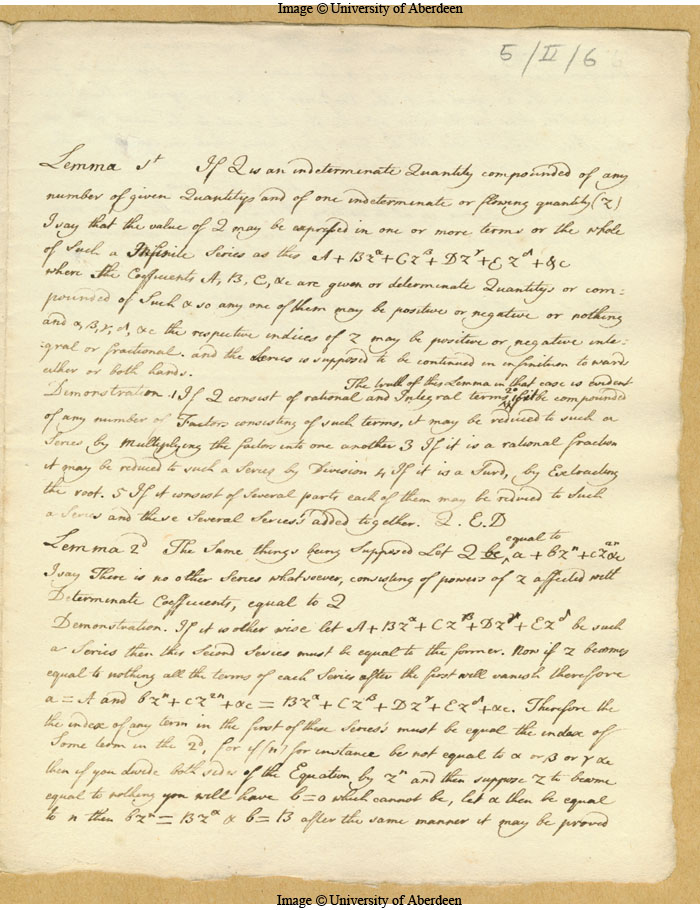 Image © University of Aberdeen
5/II/6
Lemma 1st If Q is an indeterminate Quantity compounded of any
number of given Quantitys and of one indeterminate or flowing quantity (z)
I say that the value of Q may be expressed in one or more terms or the whole
of Such a Infinite Series as this A + Bz^α + Cz^β + Dz^γ + Ez^δ + &c
where the Coefficients A, B, C, &c are given or determinate Quantitys or com=
pounded of Such & so any one of them may be positive or negative or nothing
and α, β, γ, δ, &c the respective indices of z may be positive or negative inte=
=gral or fractional. and the Series is supposed to be continued in infinitum towards
either or both hands.
The truth of this Lemma in that case is evident
Demonstration. 1 If Q consist of rational and Integral terms, 2o if it be compounded
of any number of Factors consisting of such terms, it may be reduced to such a
Series by Multiplying the factors into one another 3 If it is a rational fraction
it may be reduced to such a Series by Division 4 If it is a Surd, by Extracting
the root. 5 If it consist of Several parts each of them may be reduced to Such
a Series and these Several Series's added together. Q. E. D
Lemma 2d The Same things being Supposed Let Q be equal to a + bz^n + cz^2n &c
I say There is no other Series whatsoever, consisting of powers of z affected with
Determinate Coefficients, equal to Q
Demonstration. If it is other wise let A + Bz^α + Cz^β + Dz^γ + Ez^δ be such
a Series then this Second Series must be equal to the former. Now if z becomes
equal to nothing all the terms of each Series after the first will vanish therefore
a = A and bz^n + cz^2n + &c = Bz^α + Cz^β + Dz^γ + Ez^δ + &c. Therefore the
the index of any term in the first of these Series's must be equal the index of
Some term in the 2d, for if (n) for instance be not equal to α or β or γ &c
then if you divide both sides of the Equation by z^n and then suppose z to become
equal to nothing you will have b = 0 which cannot be, let α then be equal
to n then bz^n = Bz^α & b = B after the same manner it may be proved
Image © University of Aberdeen